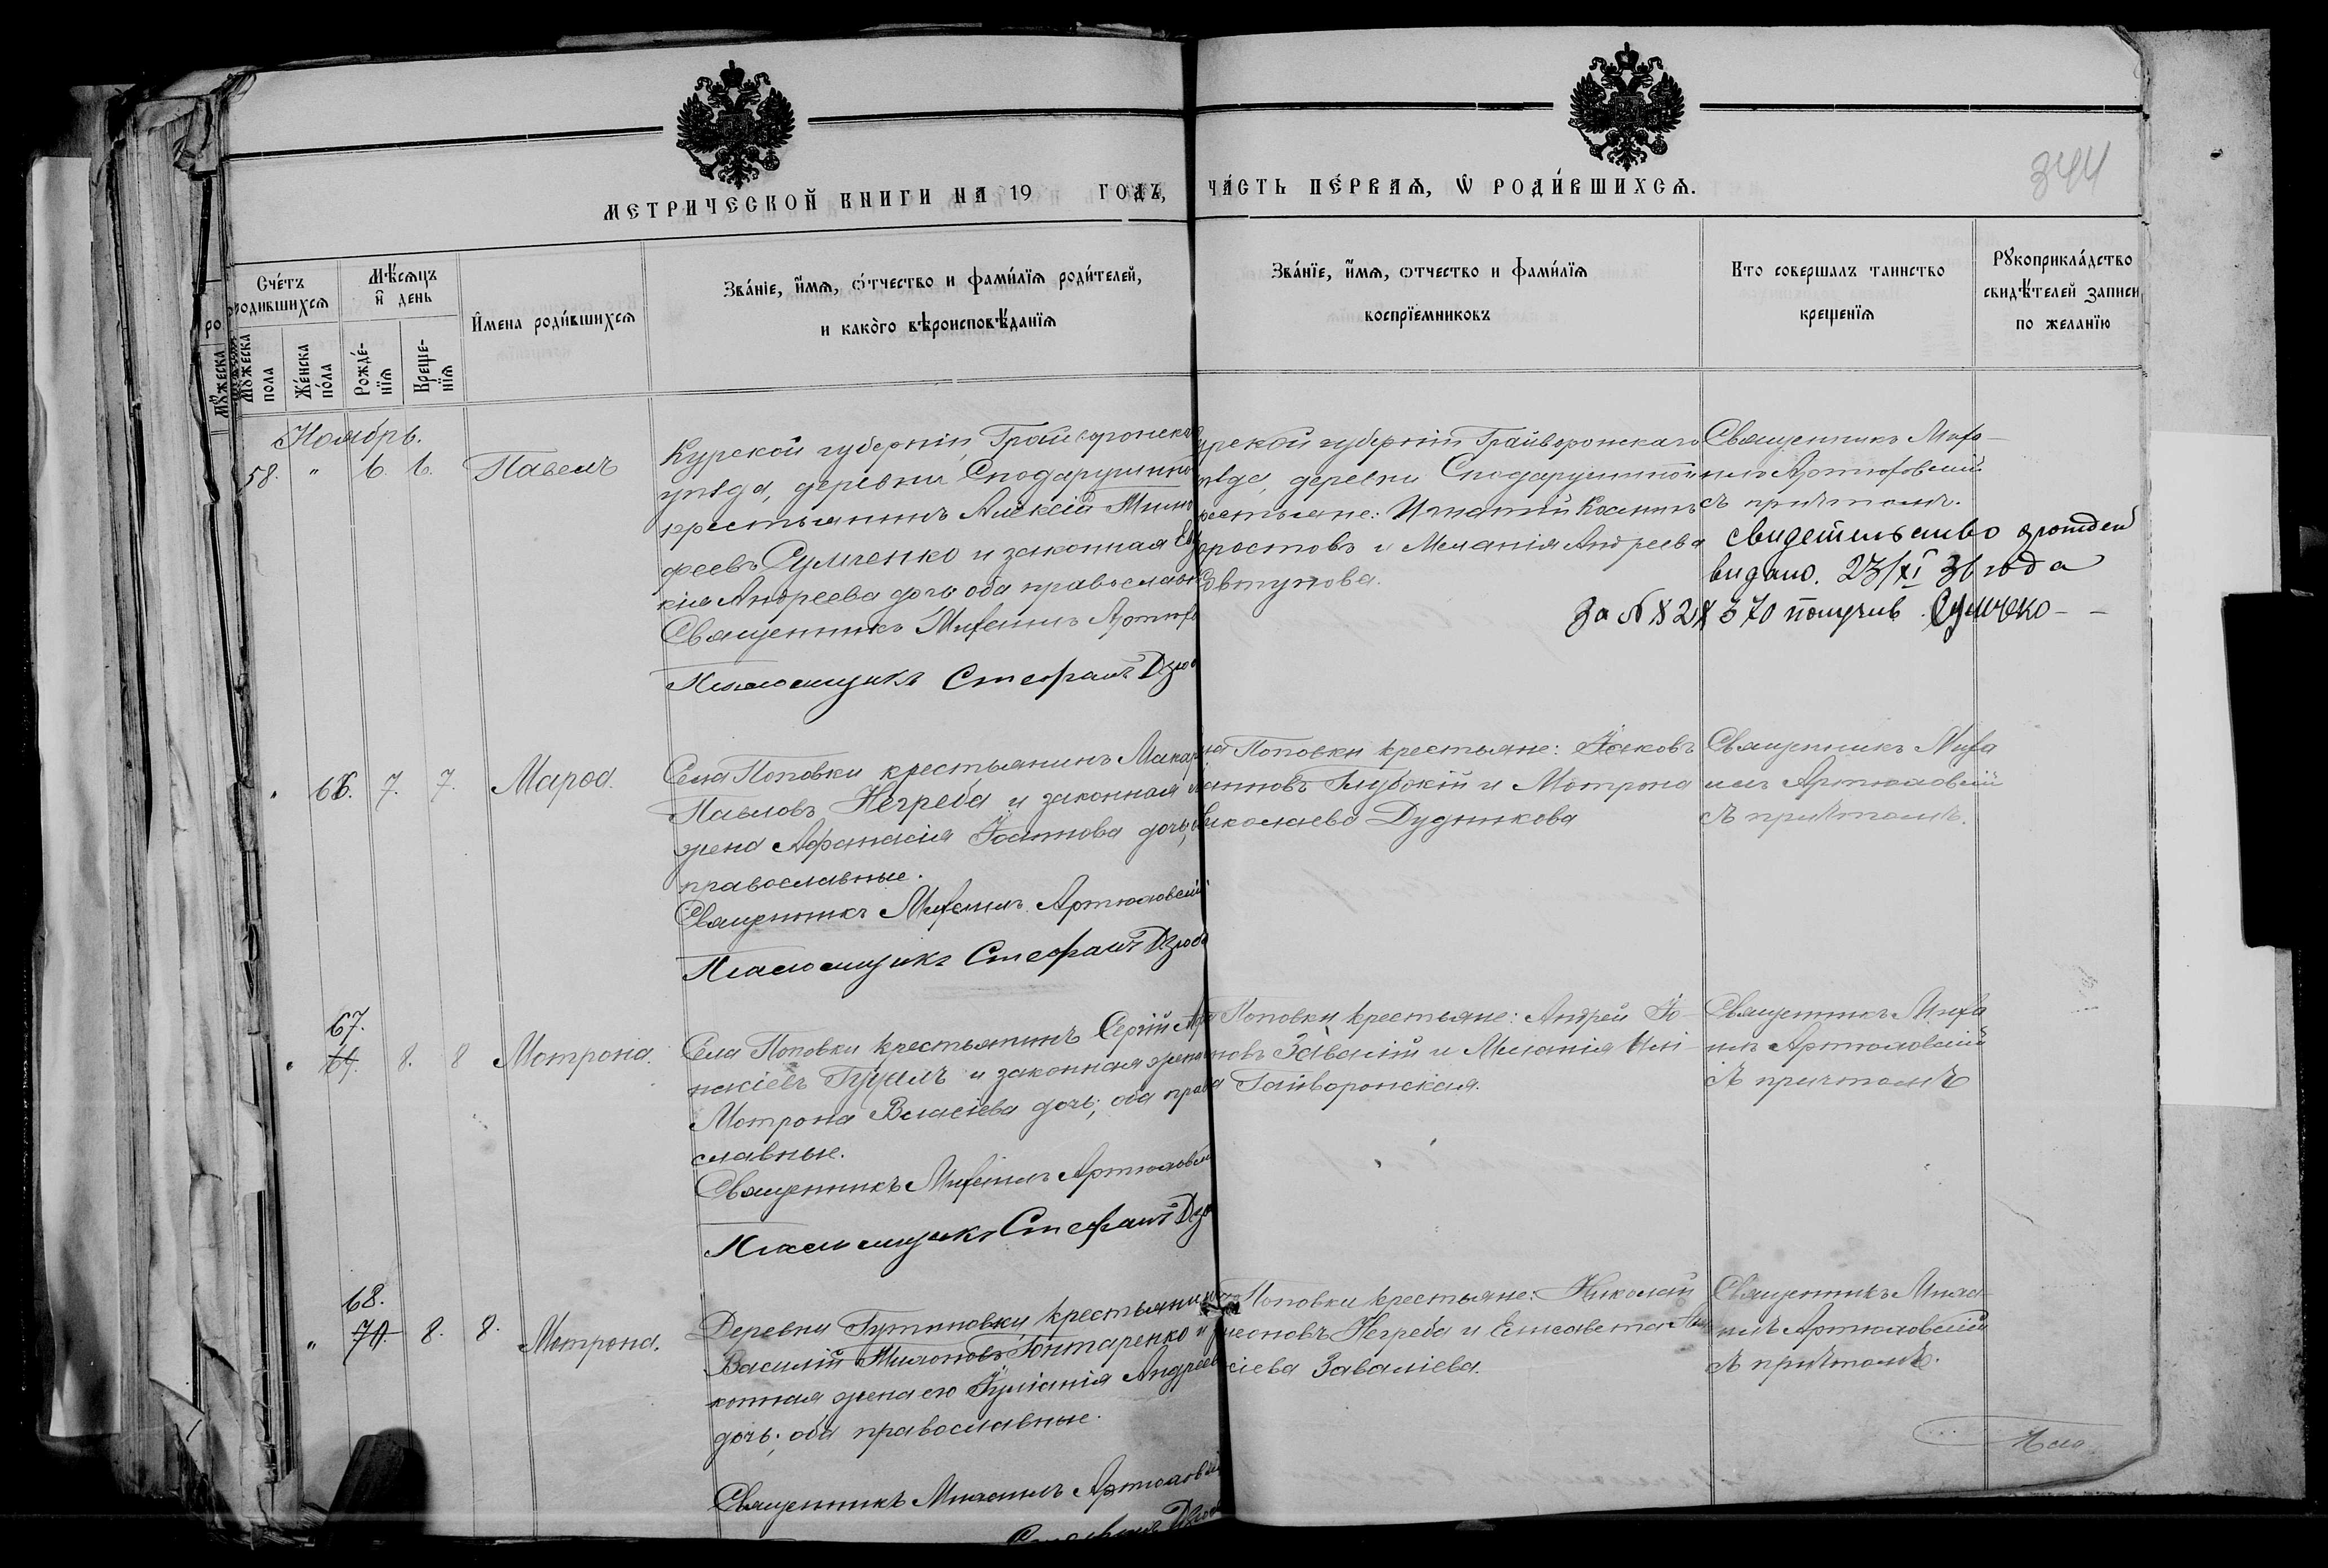 344
МЕТРИЧЕСКОЙ КНИГИ НА 19 ГОДЪ, ЧА́СТЬ ПЕ́РВАЯ, Ѡ РОДИ́ВШИХСЯ.
Сче́тъ родившихся
Мѣ́сяцъ и҆ день
И҆мена роди́вшихся
Зва́ніе, и҆́мя, о́тчество и фами́лїя роди́телей, и како́го вѣроисповѣ́данїя
Зва́нїе, и҆́мя, отчество и фами́лїя воспрїемниковъ
Кто совершалъ таинство крещенїя
Рꙋкоприкла́дство свидѣтелей записи по желанїю
Мꙋжеска пола
Же́нска по́ла
Рожде́нїя
Креще́нїя
Ноябрь.
58. " 6. 6. Павелъ
Курской губерніи, Грайворонска
уѣзда, деревни Сподарушино
крестьянинъ Алексій Тимо
феевъ Сумченко и законная
Андреева дочь оба православн
Священникъ Михаилъ Артюхо
Псаломщикъ Стефанъ Дзюб
урской губерніи Грайворонскаго
ѣзда, деревни Сподарушиной
рестьяне: Игнатій Косминъ
и Меланія Андреева
Овтунова.
Священникъ Миха
илъ Артюховскій
съ причтомъ.
свидетельство
видано. 23/XI 36 года
За № 828370 получив Сумчеко
66. 7. 7. Марѳа.
Села Поповки крестьянинъ Макар
Павловъ Негреба и законная
жена Афанасія Іоаннова дочь,
православные.
Священникъ Михаилъ Артюховскій
Псаломщикъ Стефанъ Дзюба
Поповки крестьяне: Іаковъ
анновъ Глубокій и Мотрона
иколаева Дудникова
Священникъ Миха
илъ Артюховскій
съ причтомъ.
67.
69. 8. 8 Мотрона.
Села Поповки крестьянинъ Сергій
Гуцалъ и законная жена
Мотрона Власіева дочь; оба право
славные.
Священникъ Михаилъ Артюховск
Псаломщикъ Стефанъ Дзю
Поповки крестьяне: Андрей Іо
новъ Завалій и Меланія
Гайворонская.
Священникъ Миха
илъ Артюховскій
съ причтомъ
68.
70. 8. 8. Мотрона.
Деревни крестьянин
Василій Гонтаренко и
конная жена его Іуліанія Андреев
дочь; оба православные.
Священникъ Михаилъ Артюховскі
Стефанъ Дзюб
Поповки крестьяне: Николай
меоновъ Негреба и Елисавета
сіева Завалiева.
Священникъ Миха
илъ Артюховскій
съ причтомъ.